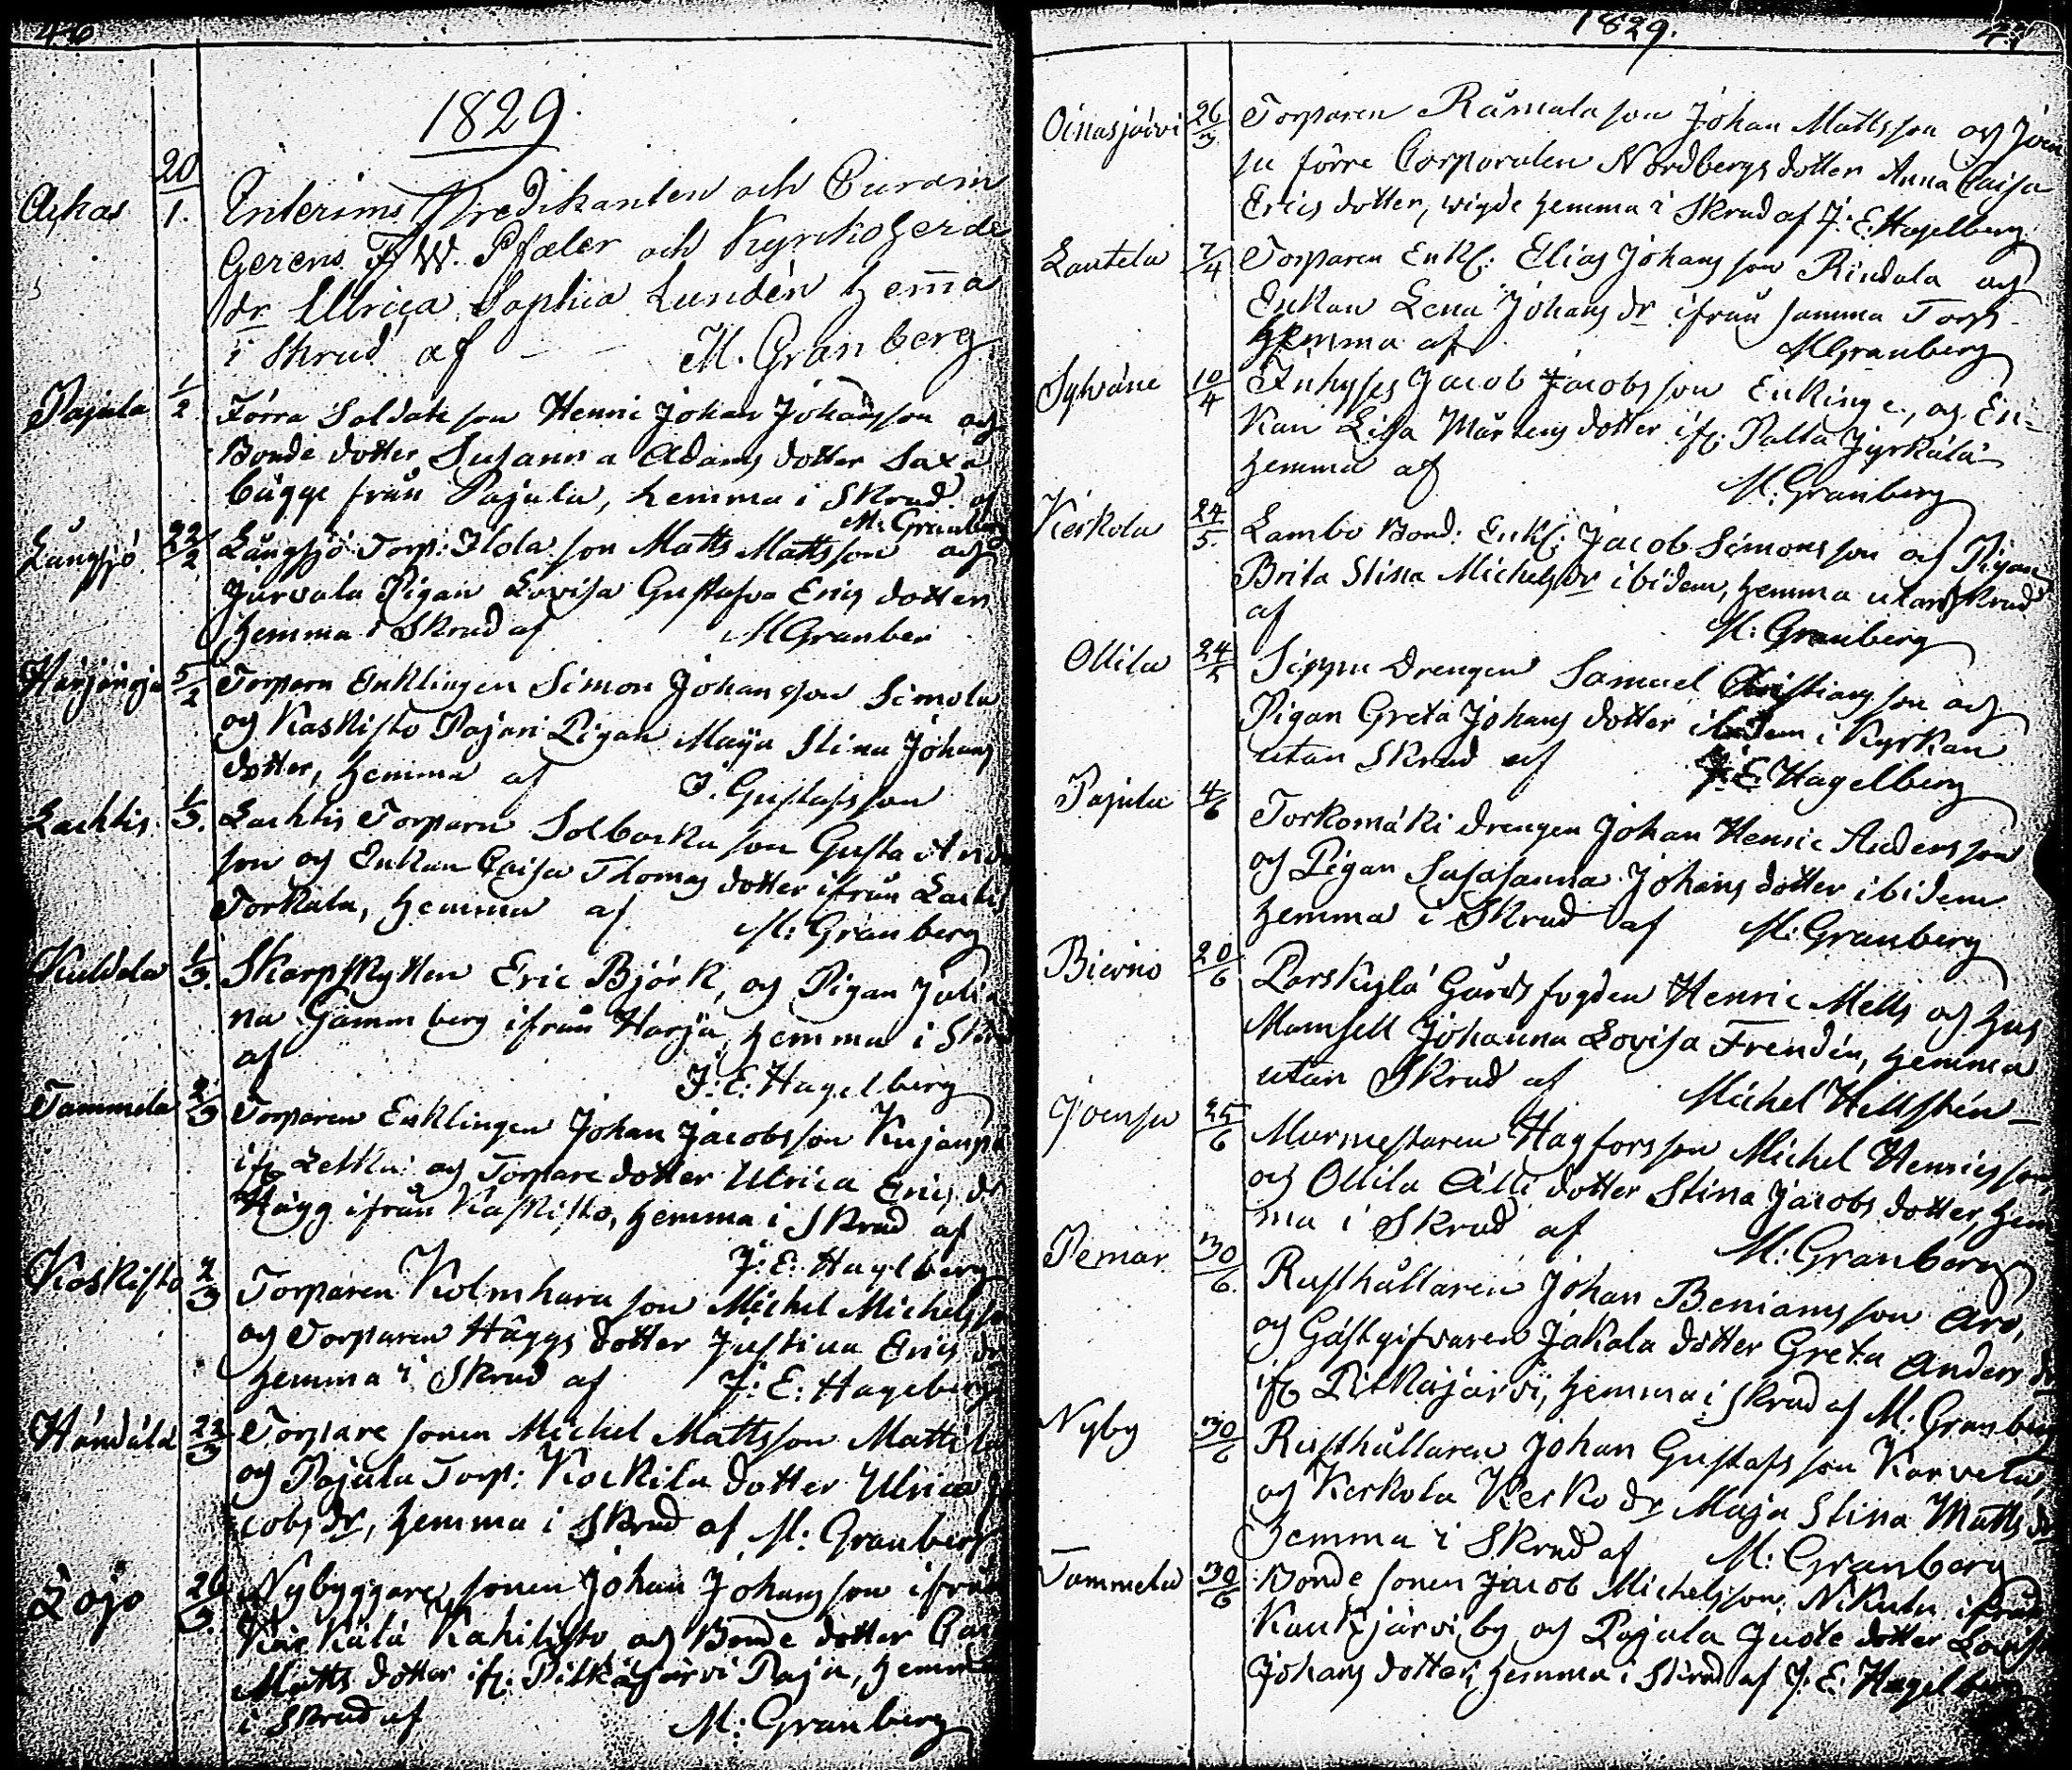 46
1829.
Arkas 20/1. Interims Predikanten och Curam
Gerens F. W. Pfaler och Kyrkoherde
dr Ulrica Sophia Lundén hem̄a
i Skrud af M. Granberg
Pajula 1/2 Förra Soldate son Henric Johan Johansson och
Bonde dotter Susanna Adams dotter Saxa
bägge från Pajula, hemma i Skrud af
M. Granberg
Långsjö 22/2 Långsjö Torp: Ilola son Matts Mattsson och
Jurvala Pigan Lovisa Gustafva Erics dotter
hemma i Skrud af M Granber
5/2 Torparn Enklingen Simon Johansson Simola
och Kaskisto Pajari Pigan Maja Stina Johans
dotter, hemma af J. Gustafsson
Lachtis. 1/3. Lachtis Torparn son Gusta
son och Enkan Caisa Thomas dotter ifrån
Torkala, hemma af M: Granberg
Kuldala 1/3. Skarpskytten Eric Björk, och Pigan Juli
na Gammberg ifrån Harju, hemma i
af J: E: Hagelberg
Tammela 2/3 Torparen Enklingen Johan Jacobsson
ifr och Torpare dotter Ulrica Erics dr
Hägg ifrån Kaskisto, hemma i Skrud af
J: E: Hagelberg
Koskisto 2/3 Torparen Kolmhara son Michel Michels
och Torparen Häggs dotter Justina Erics dr
hemma i Skrud af J: E: Hageberg
Händälä 22/3 Torpare sonen Michel Mattsson
och Pajula Torp: Kockila dotter Ulrica Ja
cobs dr, hemma i Skrud af M: Granberg
26/3. Nybyggare sonen Johan Johansson ifrån
Kahilisto och Bonde dotter Cai
Matts dotter ifr: Pitkäjärvi Paju, hemm
i Skrud af M: Granberg
1829. 47
Oinasjärvi 26/3 Torparen Rämäla son Johan Mattsson och Joen
su förre Corporalen Nordbergs dotter Anna Caisa
Erics dotter, wigde hemma i Skrud af J: E: Hagelberg
Lautela 7/4 Torparen Enkl: Elias Johansson Rindala och
Enkan Lena Johans dr ifrån samma Torp
hemma af M Granberg
Sylväne 10/4 Inhyses Jacob Jacobsson Enkinge, och En=
kan Lisa Mårtens dotter ifr: Palta Jyrkälä
hemma af M: Granberg
Kerkola 24/5. Lambo Bond: Enkl: Jacob Simonsson och Pigan
Brita Stina Michels dr ibidem, hemma utan Skrud
af M: Granberg
Ollila 24/5 Seppu Drengen Samuel Christiansson och
Pigan Greta Johans dotter ibidem i Kyrkan
utan Skrud af J: E: Hagelberg
Pajula 4/6 Torkomäki drengen Johan Henric Andersson
och Pigan Susasanna Johans dotter ibidem
hemma i Skrud af M: Granberg
Bierno 20/6 Perskylä Gårds fogden Henric Mells och Hus
Mamsell Johanna Lovisa Frendén, hemma
utan Skrud af Michel Hellstén
Joensu 25/6 Murmestaren Hagfors son Michel Henricsson
och Ollila Älli dotter Stina Jacobs dotter, hem
ma i Skrud af M: Granberg
Pemar 30/6. Rusthållaren Johan Beniamsson Aro,
och Gästgifvaren Jakala dotter Greta Anders dr
ifr Pitkäjärvi, hemma i Skrud af M: Granberg
Nyby 30/6 Rusthållaren Johan Gustafsson Karvela,
och Kerkola Kesko dr Maja Stina Matts dr
hemma i Skrud af M: Granberg
Tammela 30/6 Bonde sonen Jacob Michelsson Nikula ifrån
Kaukjärvi by och Pajula Juote dotter Lovisa
Johans dotter, hemma i Skrud af J: E: Hagelberg